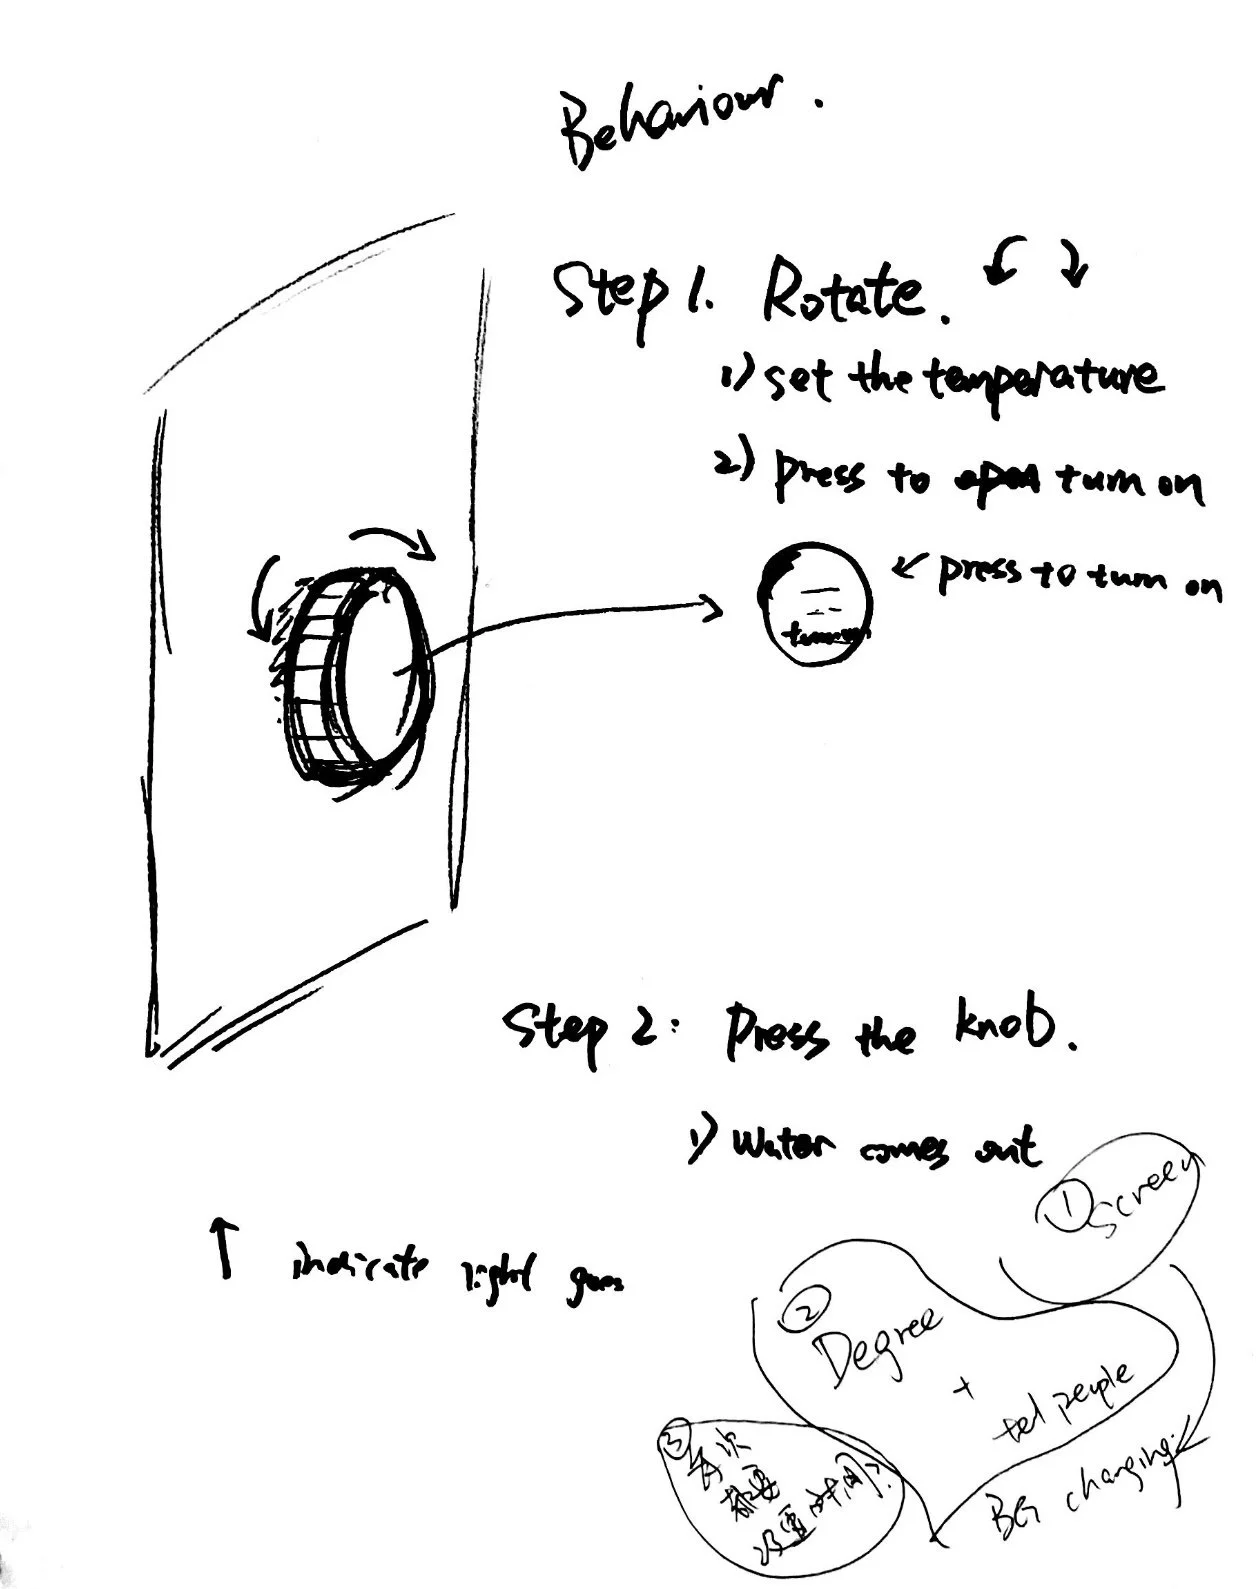 Behaviour.
Step 1. Rotate.
1) set the temperature
2) press to open turn on
press to turn on
Step 2: Press the knob.
1) Water comes out
indicate light goes
① Screen
② Degree
+
tel people
BG changing
③ 每次
都要
设置时间?